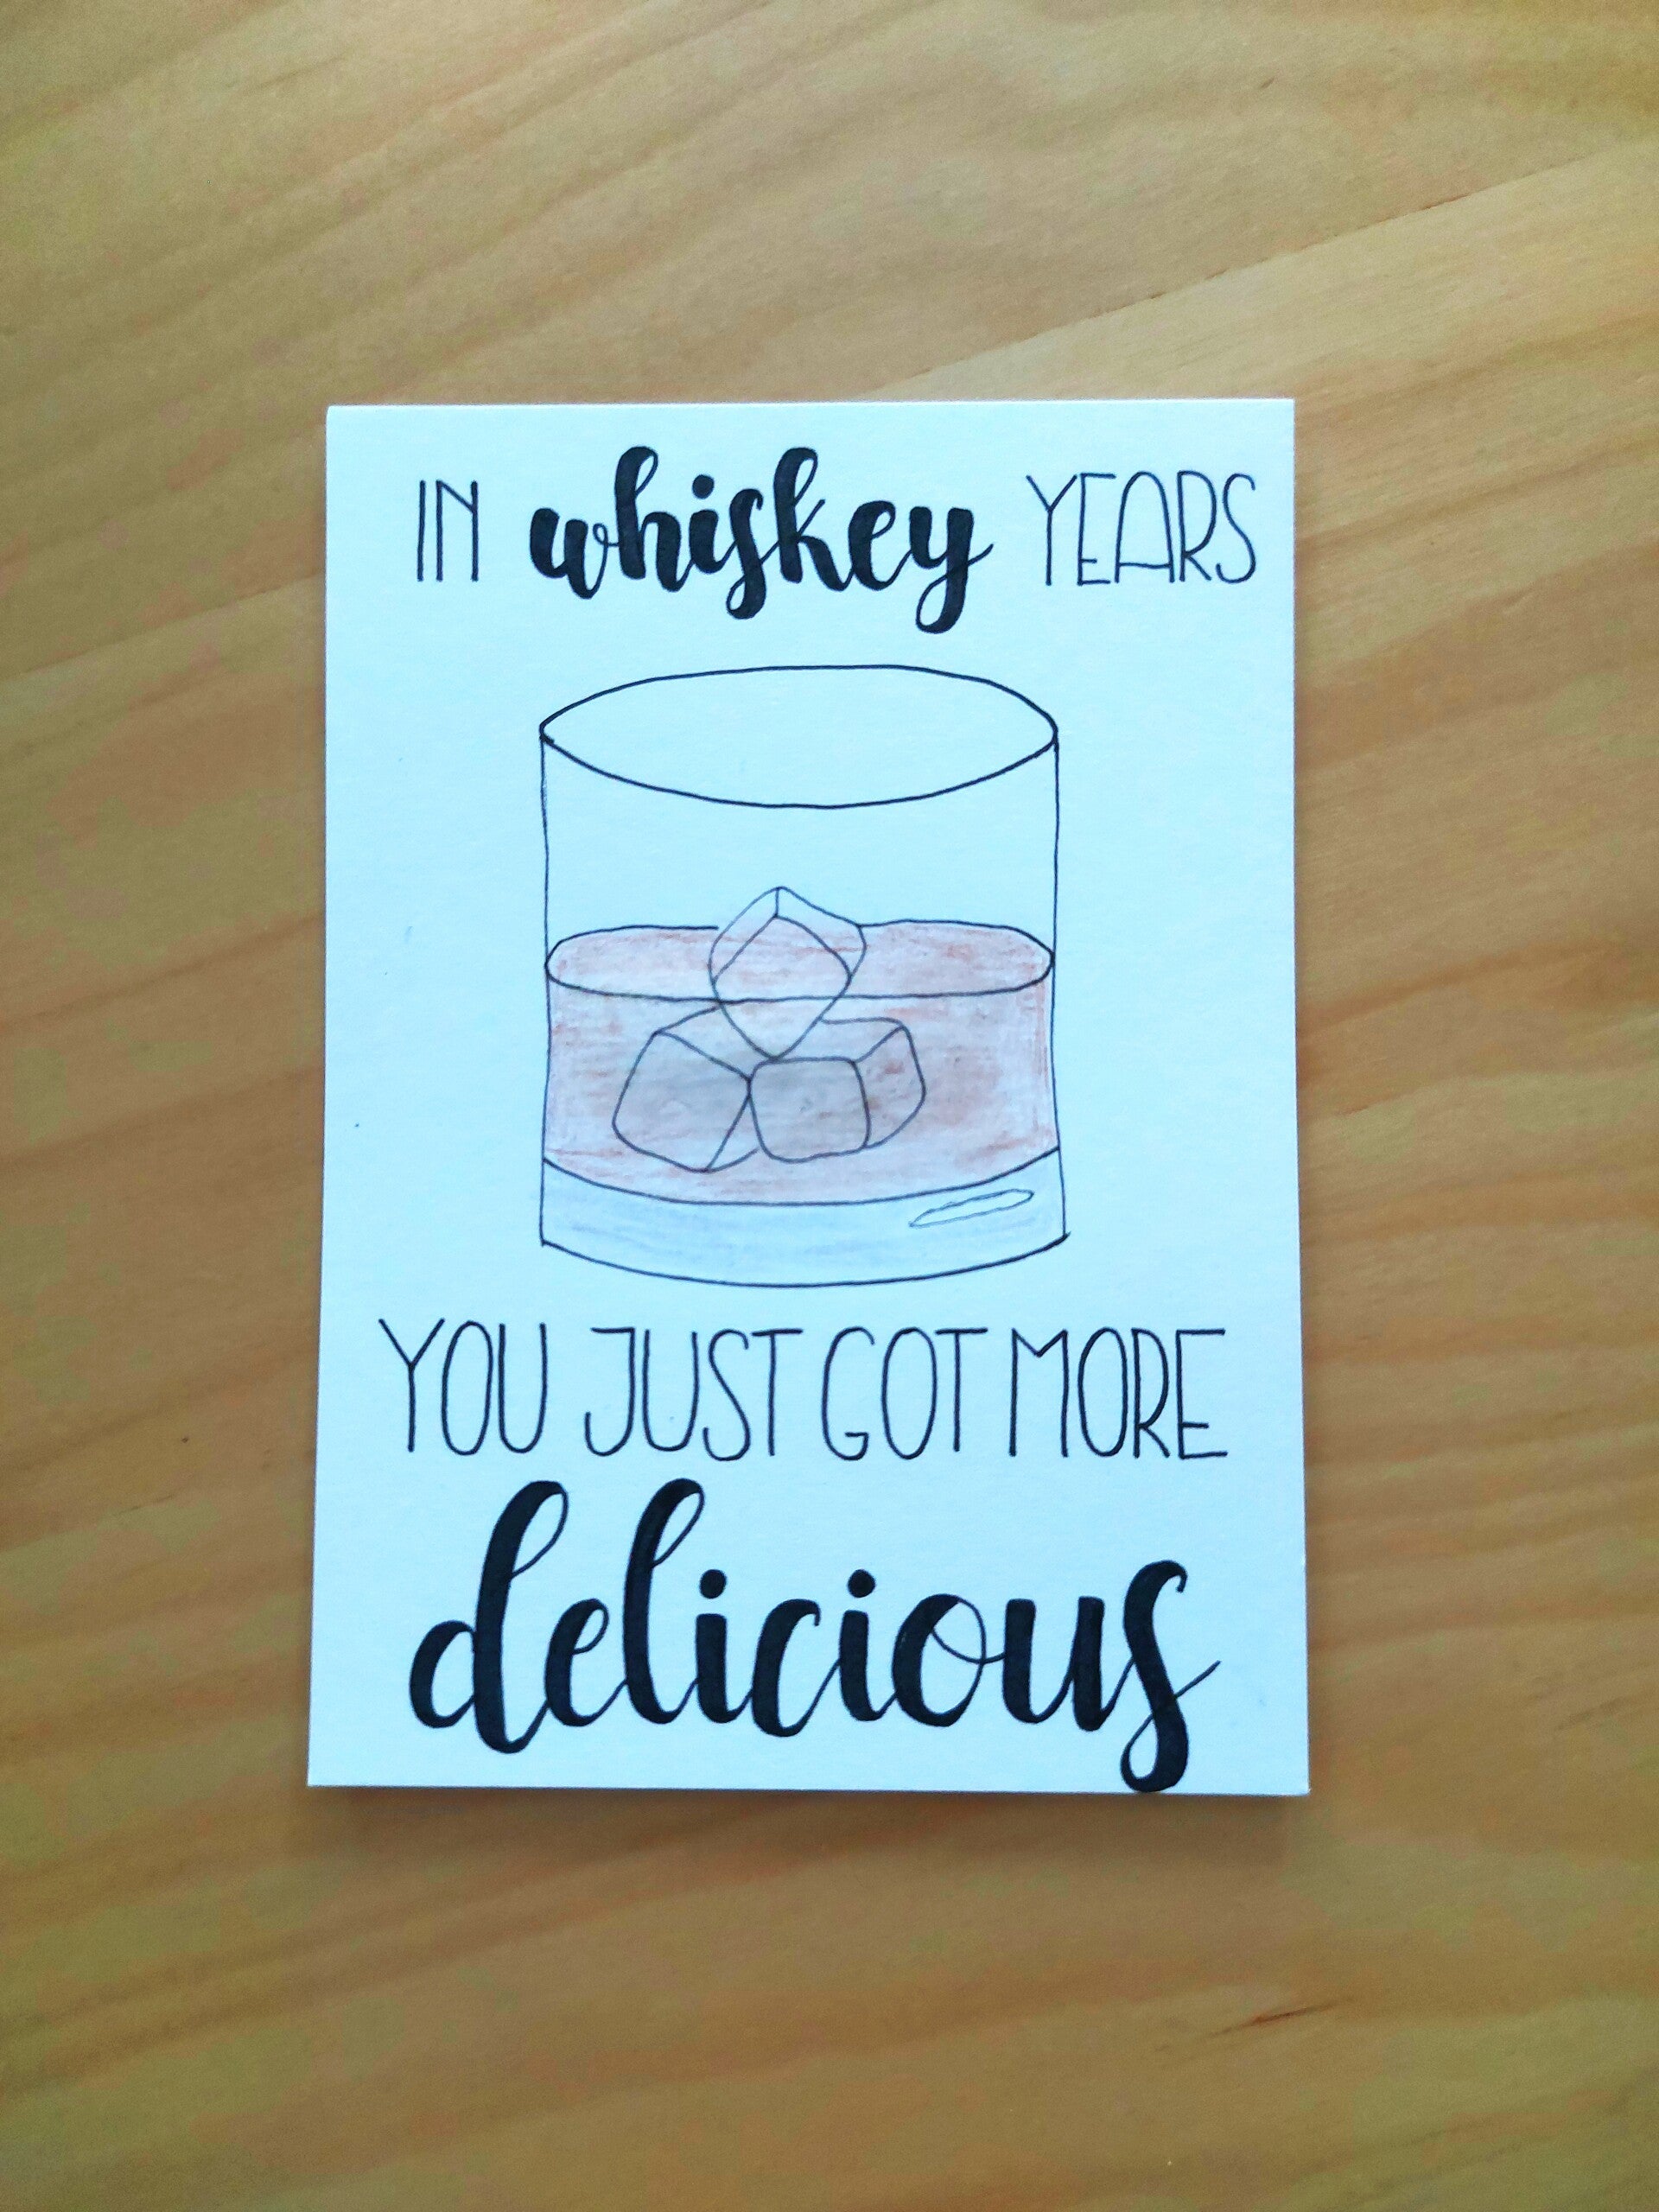 IN whiskey YEARS
YOU JUST GOT MORE
delicious